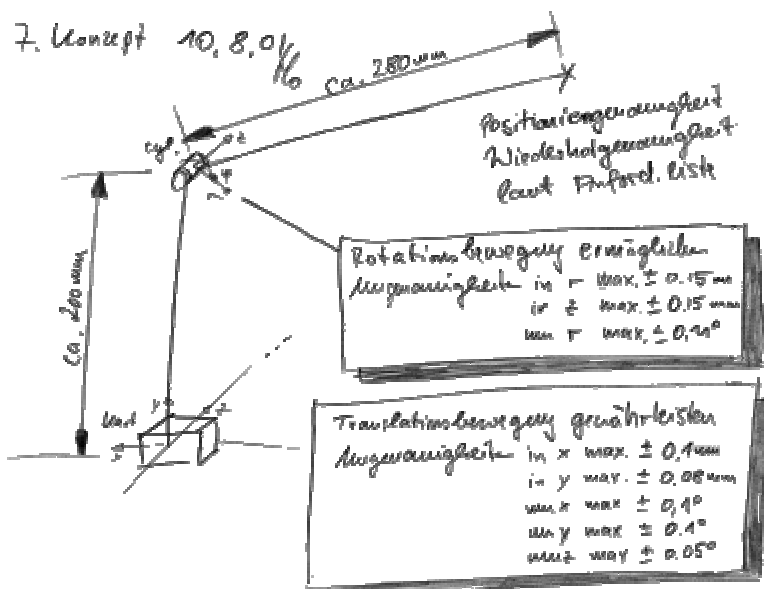 7. Konzept 10.8.01
ca. 280 mm
cyl.
z
φ
r
Positioniergenauigkeit
Wiederholgenauigkeit
laut Anford. liste
ca. 200 mm
Rotationsbewegung ermöglichen
Ungenauigkeiten in r max. ± 0.15 mm
in z max. ± 0.15 mm
um r max. ± 0,11°
y
z
x
Translationsbewegung gewährleisten
Ungenauigkeiten in x max. ± 0,1 mm
in y max. ± 0.08 mm
um x max ± 0,1°
um y max ± 0.1°
um z max ± 0.05°